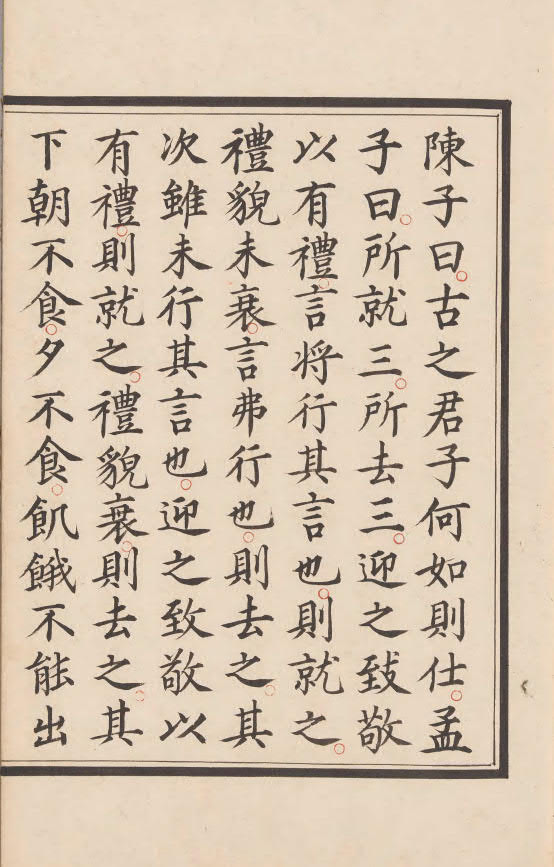 陳子曰。古之君子何如則仕。孟
子曰。所就三。所去三。迎之致敬
以有禮。言将行其言也。則就之。
禮貌未衰。言弗行也。則去之。其
次雖未行其言也。迎之致敬以
有禮。則就之。禮貌衰。則去之。其
下朝不食。夕不食。飢餓不能出